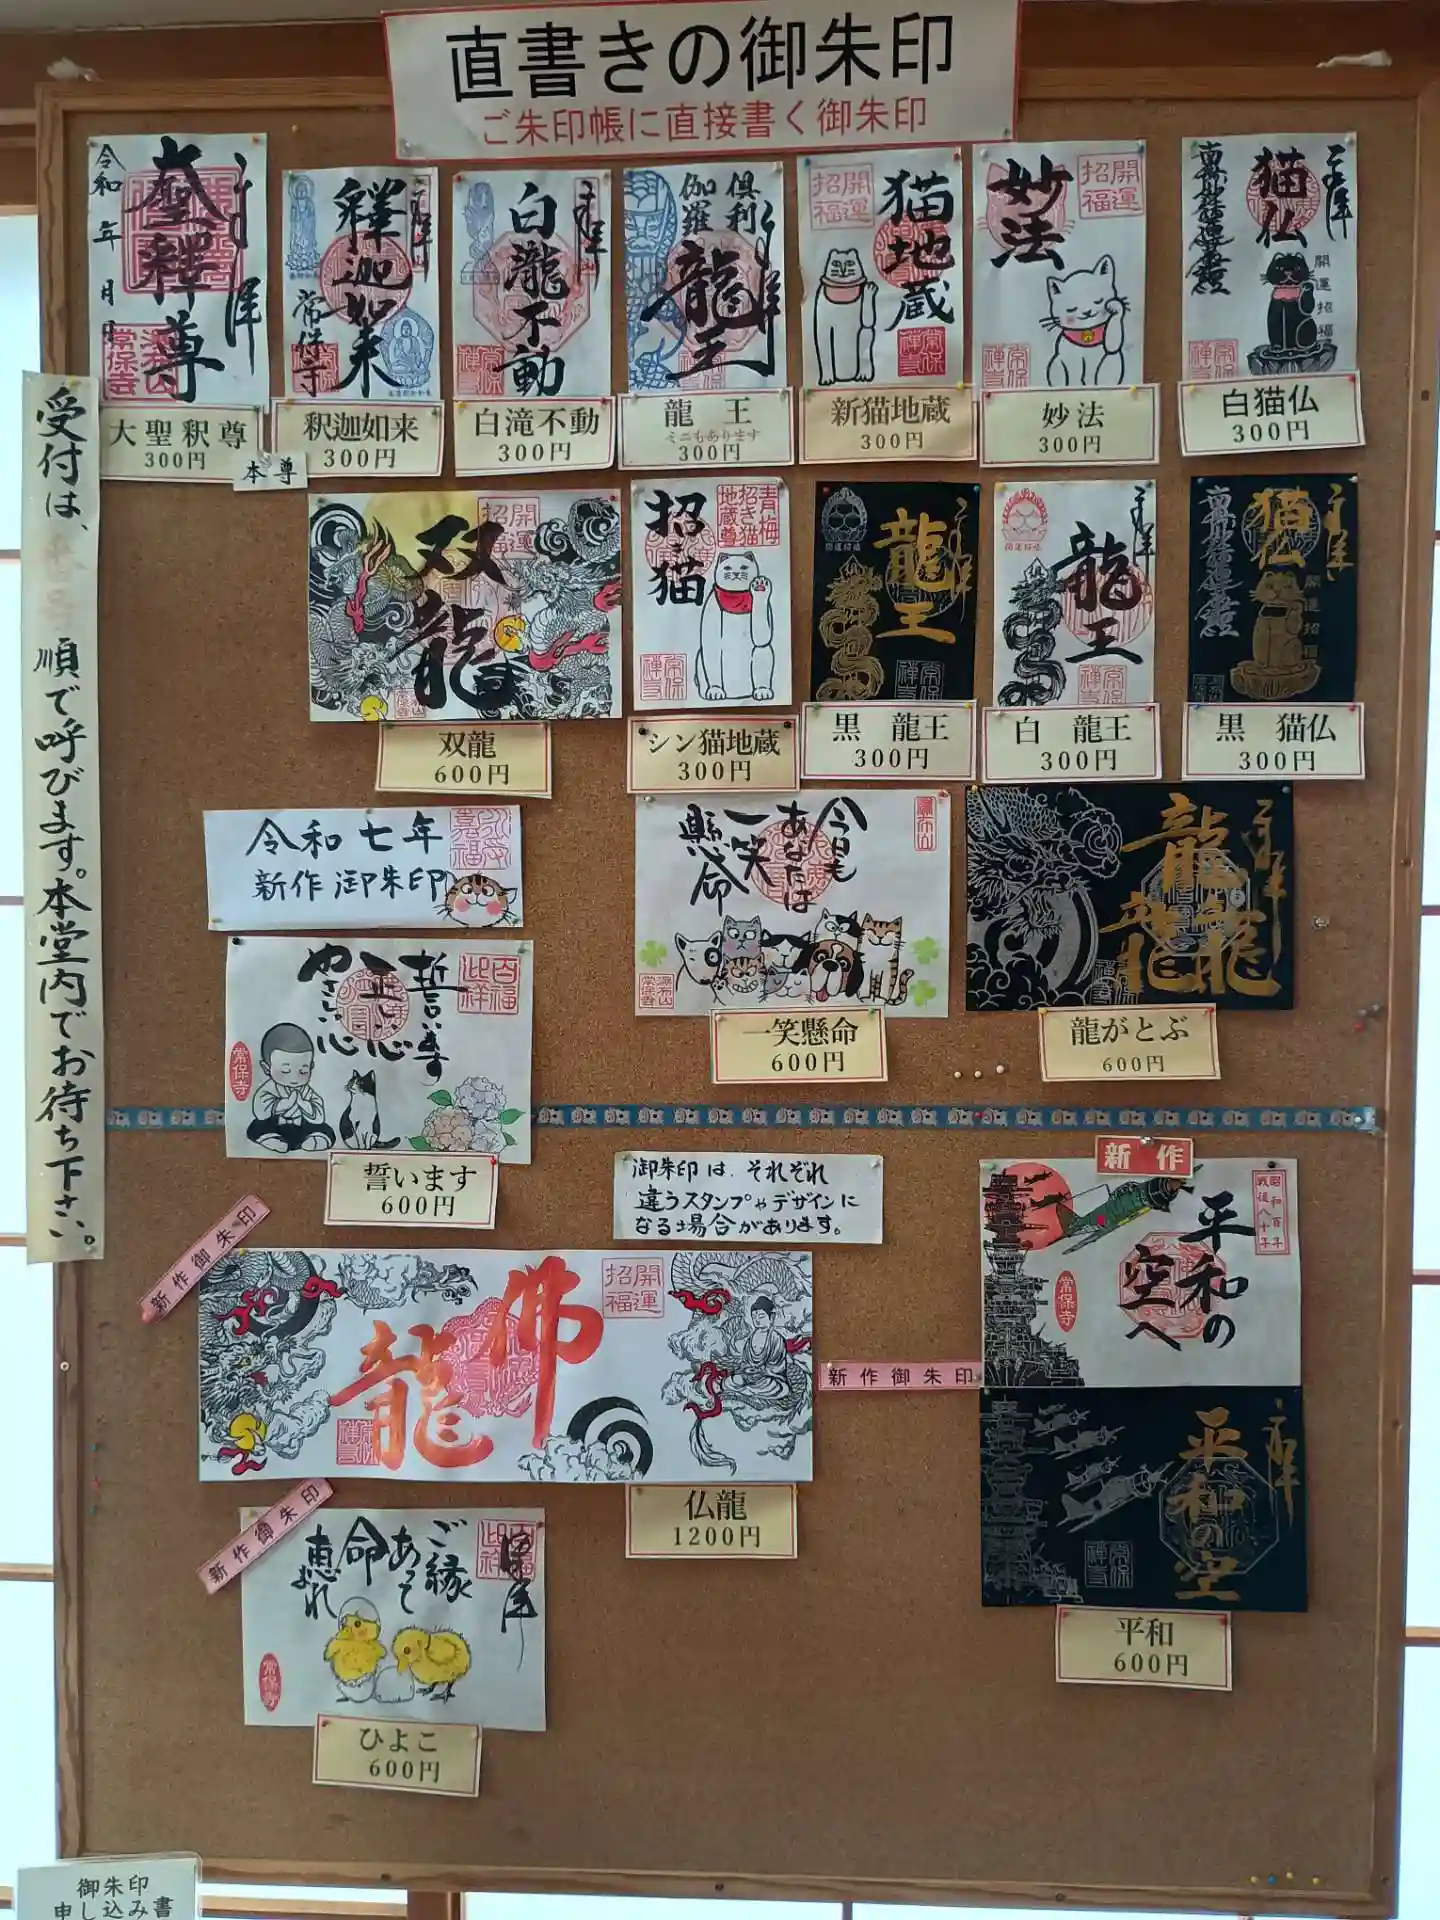 直書きの御朱印
ご朱印帳に直接書く御朱印
令和 年 月 日
大聖釋尊
常保寺
大聖釈尊
300円
本尊
釋迦如来
常保寺
釈迦如来
300円
白瀧不動
白滝不動
300円
倶利
伽羅
龍王
龍 王
ミニもあります
300円
開運
招福
猫地蔵
新猫地蔵
300円
開運
招福
妙法
妙法
300円
猫仏
開運招福
白猫仏
300円
開運
招福
双龍
双龍
600円
青梅
招き猫
地蔵尊
招き猫
シン猫地蔵
300円
龍王
黒 龍王
300円
龍王
白 龍王
300円
猫仏
開運招福
黒 猫仏
300円
受付は、
順で呼びます。本堂内でお待ち下さい。
令和七年
新作御朱印
今日も
あなたは
一笑
懸命
一笑懸命
600円
龍
龍龍
龍がとぶ
600円
誓います
正しい心
やさしい心
常保寺
誓います
600円
御朱印は、それぞれ
違うスタンプやデザインに
なる場合があります。
新作
昭和百年
戦後八十年
平和の
空へ
常保寺
新作御朱印
平和の空
平和
600円
新作御朱印
開運
招福
佛
龍
仏龍
1200円
新作御朱印
ご縁
あって
命
恵まれ
常保寺
ひよこ
600円
御朱印
申し込み書